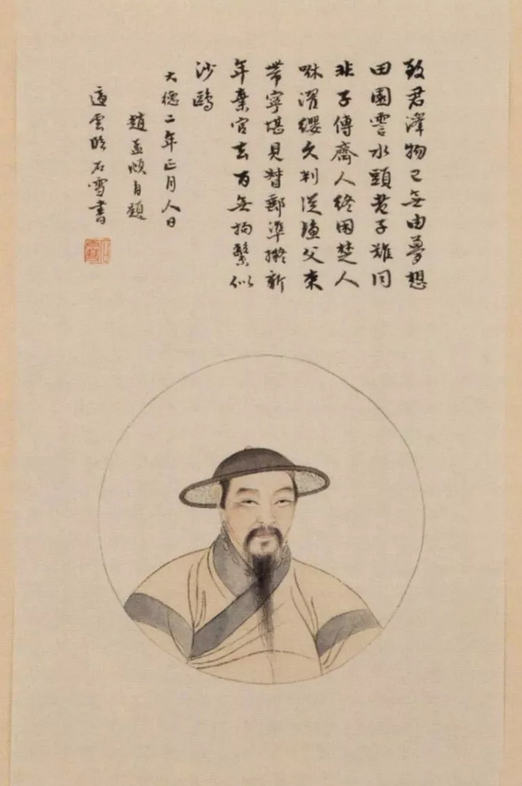 致君澤物已無由夢想
田園雲水頭老子難同
非子傳齊人終困楚人
咻濯纓久判從漁父束
帶寧堪見督郵準擬新
年棄官去百無拘繫似
沙鷗
大德二年正月人日
趙孟頫自題
石雪書